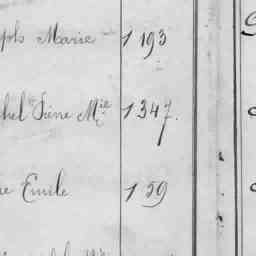 ph Marie 1193
hel Pierre Mie 1347.
ne Emile 159